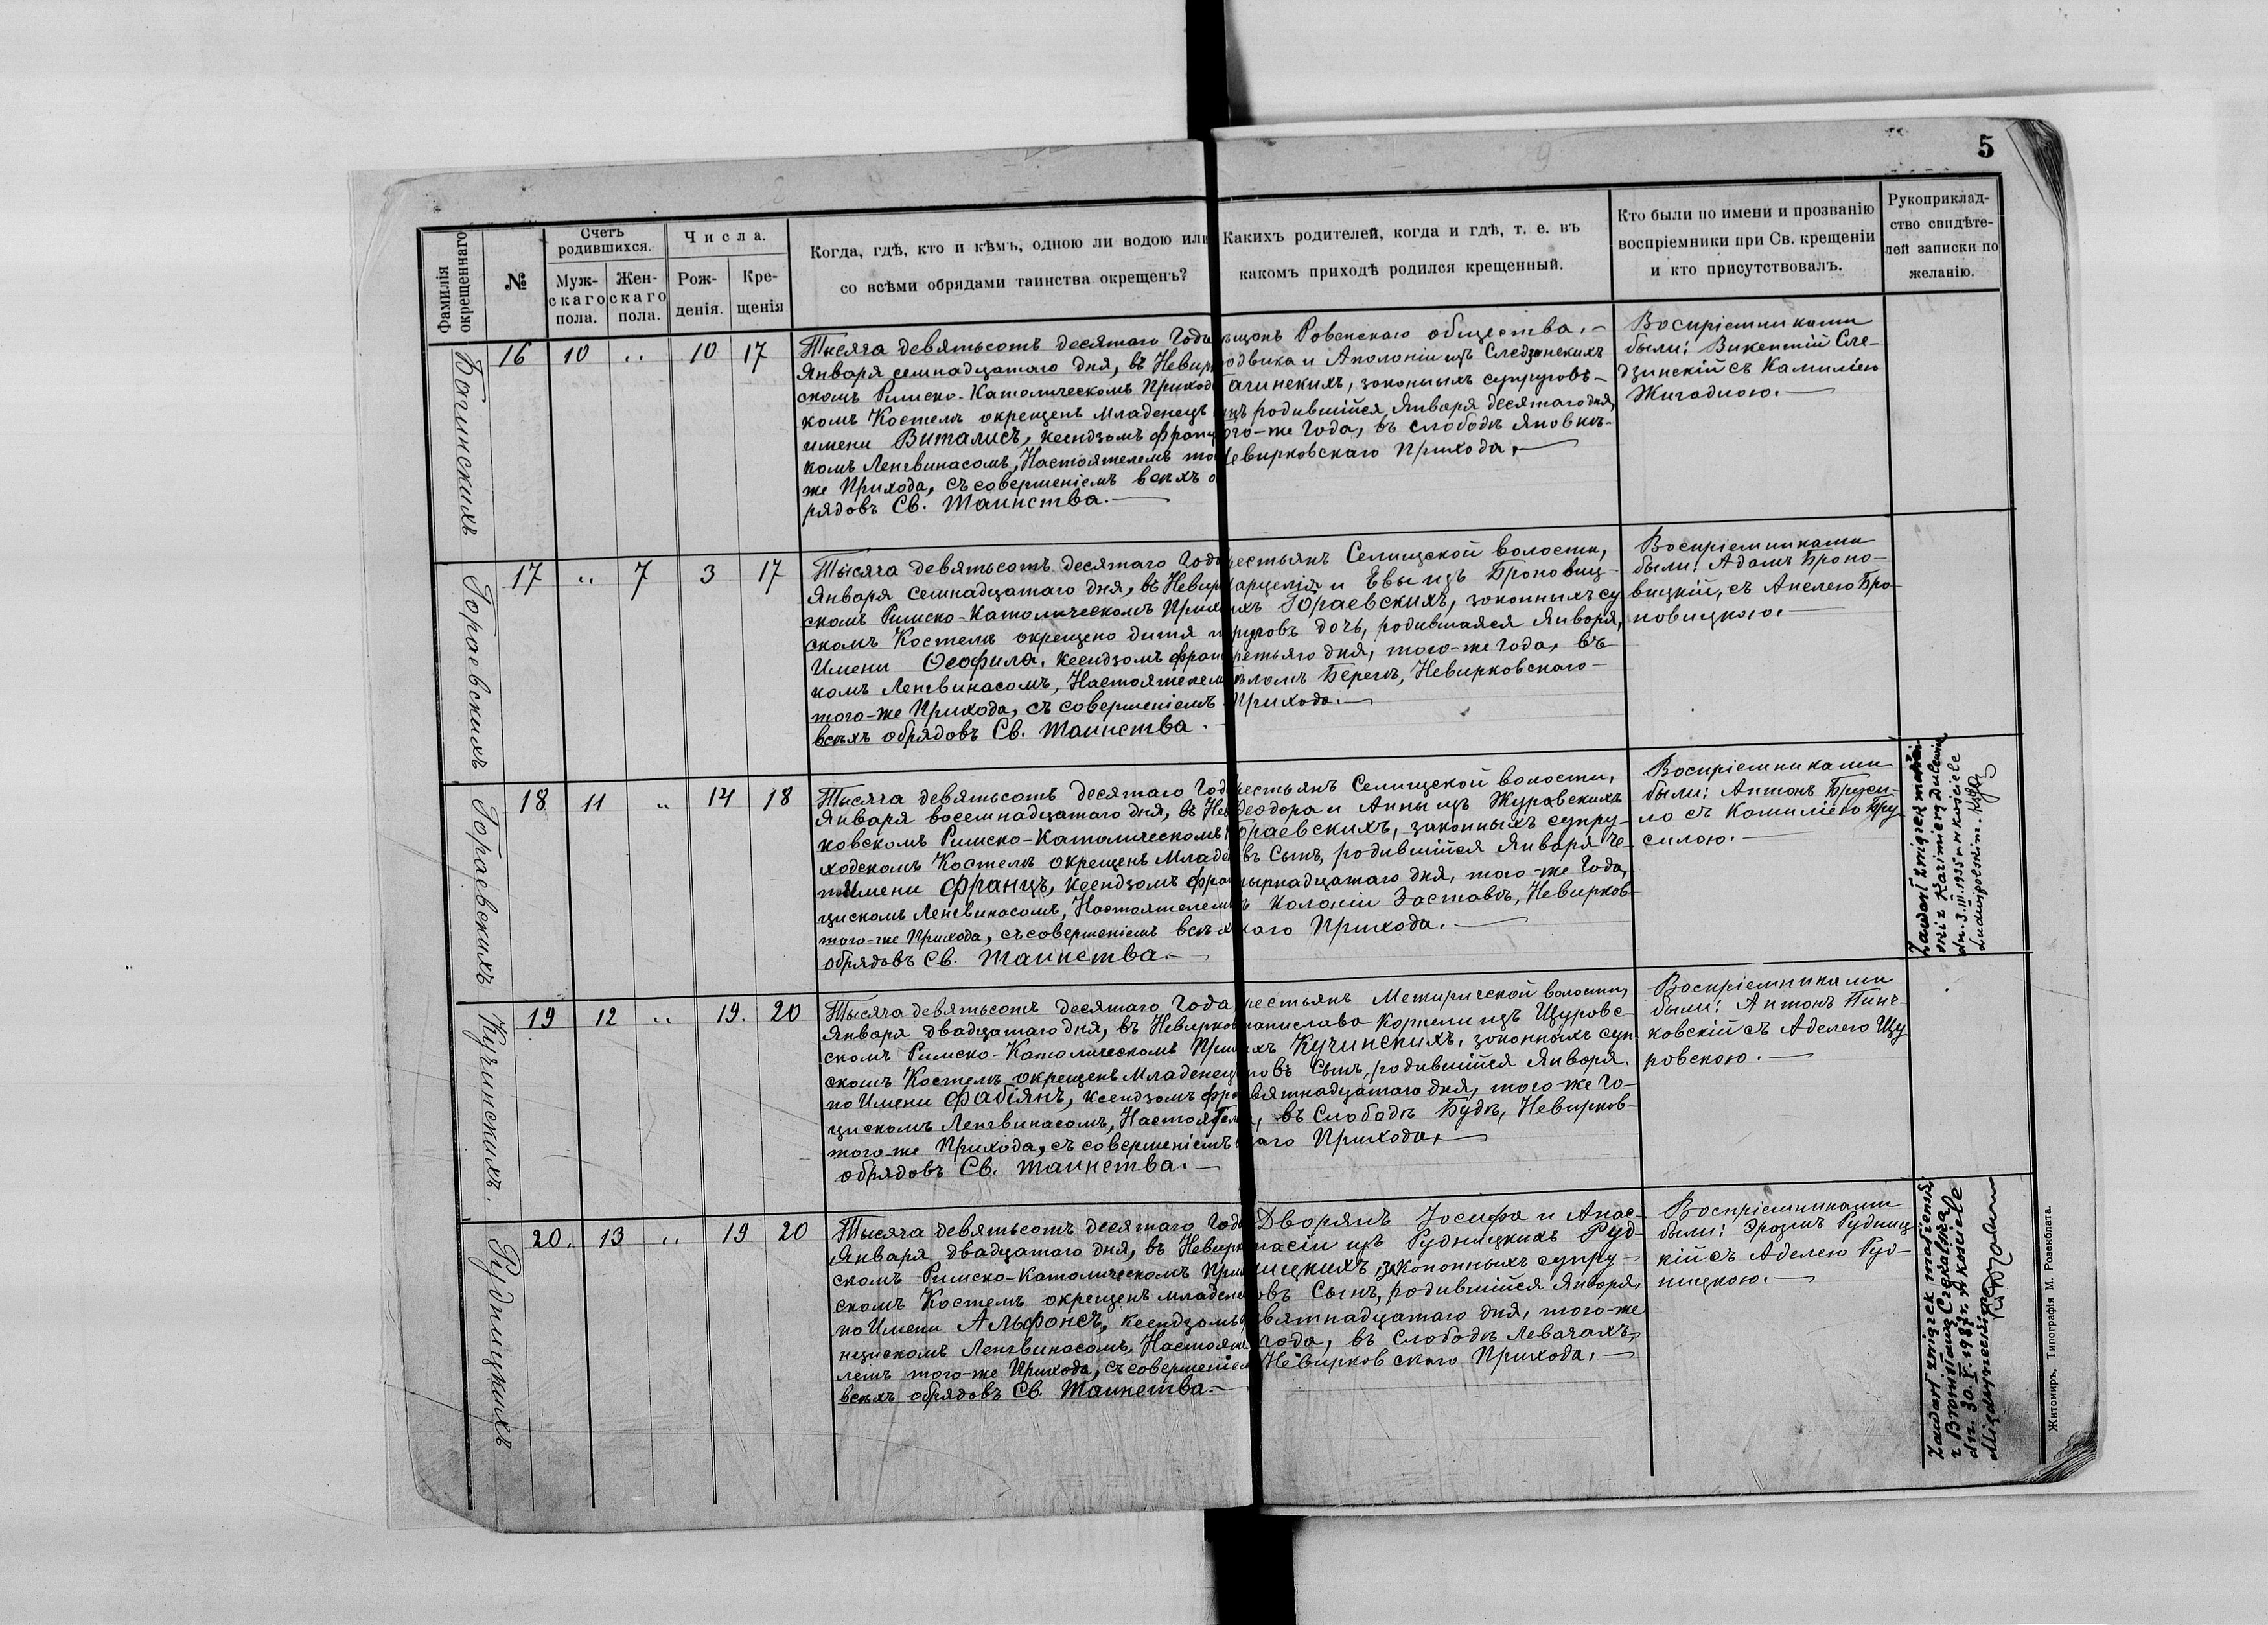 5
Фамилія окрещеннаго
№
Счетъ родившихся.
Мужскаго пола.
Женскаго пола.
Числа.
Рожденія.
Крещенія
Когда, гдѣ, кто и кѣмъ, одною ли водою или
со всѣми обрядами таинства окрещенъ?
Какихъ родителей, когда и гдѣ, т. е. въ
какомъ приходѣ родился крещенный.
Кто были по имени и прозванію
воспріемники при Св. крещеніи
и кто присутствовалъ.
Рукоприклад-
ство свидѣте-
лей записки по
желанію.
Багинскихъ
16 10 „ 10 17
Тысяча девятьсотъ десятаго Года
Января семнадцатаго дня, въ Невир
скомъ Римско-Католическомъ Приход
комъ Костелѣ окрещенъ Младенецъ
имени Виталисъ, ксендзомъ Франц
комъ Ленгвинасомъ, Настоятелемъ то
же Прихода, съ совершеніемъ всѣхъ о
рядовъ Св. Таинства.—
ѣщанъ Ровенскаго общества.—
одвика и Аполоніи изъ Следзинскихъ
агинскихъ, законыхъ супруговъ—
нъ родившійся Января десятаго дня,
ого-же Года, въ слободѣ Яновкѣ-
евирковскаго Прихода.—
Воспріемниками
были: Викентій Сле-
дзинскій съ Камиліею
Жигадлою.—
Гораевскихъ
17 „ 7 3 17
Тысяча девятьсотъ десятаго Года
Января семнадцатаго дня, въ Невир
скомъ Римско-Католическомъ Прих
скомъ Костелѣ окрещено дитя п
Имени Ѳеофила, ксендзомъ Фран
комъ Ленгвинасомъ, Настоятелем
того-же Прихода, съ совершеніемъ
всѣхъ обрядовъ Св. Таинства.
рестьянъ Селищской волости,
арцелія и Евы изъ Броновиц-
ихъ Гораевскихъ, законныхъ су
руговъ дочь, родившаяся Января,
ретьяго дня, того-же Года, въ
Бѣломъ Берегѣ, Невирковскаго—
Прихода.—
Воспріемниками
были: Адамъ Броно-
вицкій, съ Анелею Бро
новицкою.—
Гораевскихъ
18 11 „ 14 18
Тысяча девятьсотъ десятаго Год
Января восемнадцатаго дня, въ Нев
ковскомъ Римско-Католическомъ
ходскомъ Костелѣ окрещенъ Младе
по Имени Францъ, ксендзомъ Фран
цискомъ Ленгвинасомъ, Настоятелем
того-же Прихода, съ совершеніемъ всѣх
обрядовъ Св. Таинства.—
рестьянъ Селищской волости,
Ѳеодора и Анны изъ Журавскихъ
ораевскихъ, законныхъ супру-
въ Сынъ, родившійся Января Че-
тырнадцатаго дня, того-же Года,
въ колоніи Заставѣ, Невирков-
скаго Прихода.—
Воспріемниками
были: Антонъ Бруси-
ло съ Камиліею Бру
силою.—
Zawarł związek małżeń-
ski z Kazimierą
dn. 3.III.1935 r. w kościele
Ludwipolskim.
Кучинскихъ.
19 12 „ 19. 20
Тысяча девятьсотъ десятаго Года
Января двадцатаго дня, въ Невирков
скомъ Римско-Католическомъ Прих
скомъ Костелѣ окрещенъ Младенец
по Имени Фабіянъ, ксендзомъ Фра
цискомъ Ленгвинасомъ, Настоятел
того-же Прихода, съ совершеніемъ
обрядовъ Св. Таинства.—
рестьянъ Межиричской волости,
танислава Корнели изъ Щуровс-
ихъ Кучинскихъ, законныхъ суп
овъ Сынъ, родившійся Января
евятнадцатаго дня, того-же Го-
, въ Слободѣ Будкѣ, Невирков-
скаго Прихода.—
Воспріемниками
были: Антонъ Пинч-
ковскій съ Аделею Щу
ровскою.—
Рудницкихъ
20. 13 „ 19 20
Тысяча девятьсотъ десятаго Года
Января двадцатаго дня, въ Невирк
скомъ Римско-Католическомъ При
скомъ Костелѣ окрещенъ младене
по Имени Альфонсъ, ксендзомъ
нцискомъ Ленгвинасомъ, Настояте
лемъ того-же Прихода, съ совершеніем
всѣхъ обрядовъ Св. Таинства.—
Дворянъ Іосифа и Анас-
тасіи изъ Рудницкихъ Руд-
ницкихъ законныхъ супру-
овъ Сынъ, родившійся Января,
евятнадцатаго дня, того-же
года, въ Слободѣ Левачахъ,
Невирковскаго Прихода.—
Воспріемниками
были: Эразмъ Рудниц
кій съ Аделею Руд-
ницкою.—
Zawarł związek małżeński
z Bronisławą
w kościele
Житомиръ, Типографія М. Розенблата.